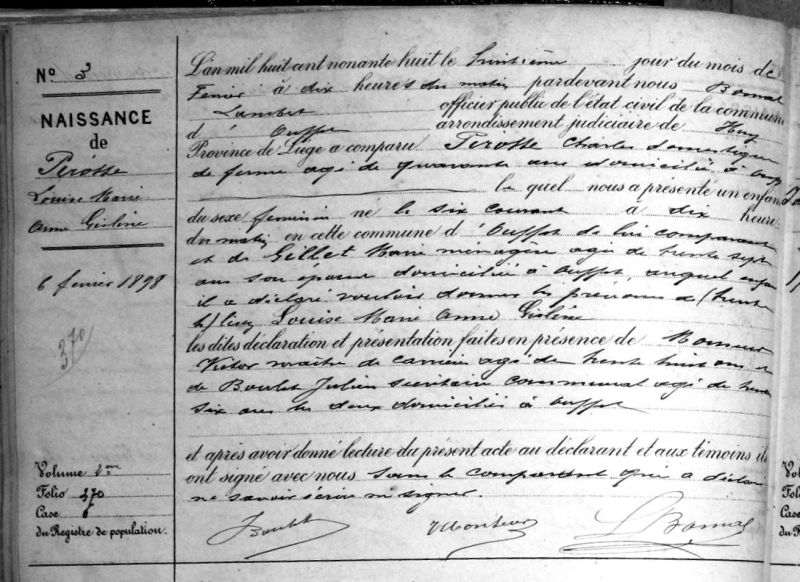 N° 3
NAISSANCE
de
Pirotte
Louise Marie
Anne Gislène
6 fevrier 1898
370
Volume 2me
Folio 370
Case 6
du Registre de population.
L'an mil huit cent nonante huit le huitième jour du mois de
Fevrier à dix heures du matin pardevant nous Bonmal
Lambert officier public de l'état civil de la commune
d' Ouffet arrondissement judiciaire de Huy
Province de Liége a comparu Pirotte Charles domestique
de ferme agé de quarante ans domicilié à Ouffet
le quel nous a présenté un enfant
du sexe feminin né le six courant à dix heures
du matin en cette commune d' Ouffet de lui comparant
et de Gillet Marie ménagère agée de trente sept
ans son épouse domiciliée à Ouffet, auquel enfant
il a déclaré vouloir donner les prénoms de
Louise Marie Anne Gislène
les dites déclaration et présentation faites en présence de Monseur
Victor maître de carrière agé de trente huit ans et
de Boulet Julien secrétaire communal agé de trente
six ans les deux domiciliés à Ouffet
et après avoir donné lecture du présent acte au déclarant et aux témoins ils
ont signé avec nous sauf le comparant qui a déclaré
ne savoir écrire ni signer.
JBoulet VMonseur L Bonmal